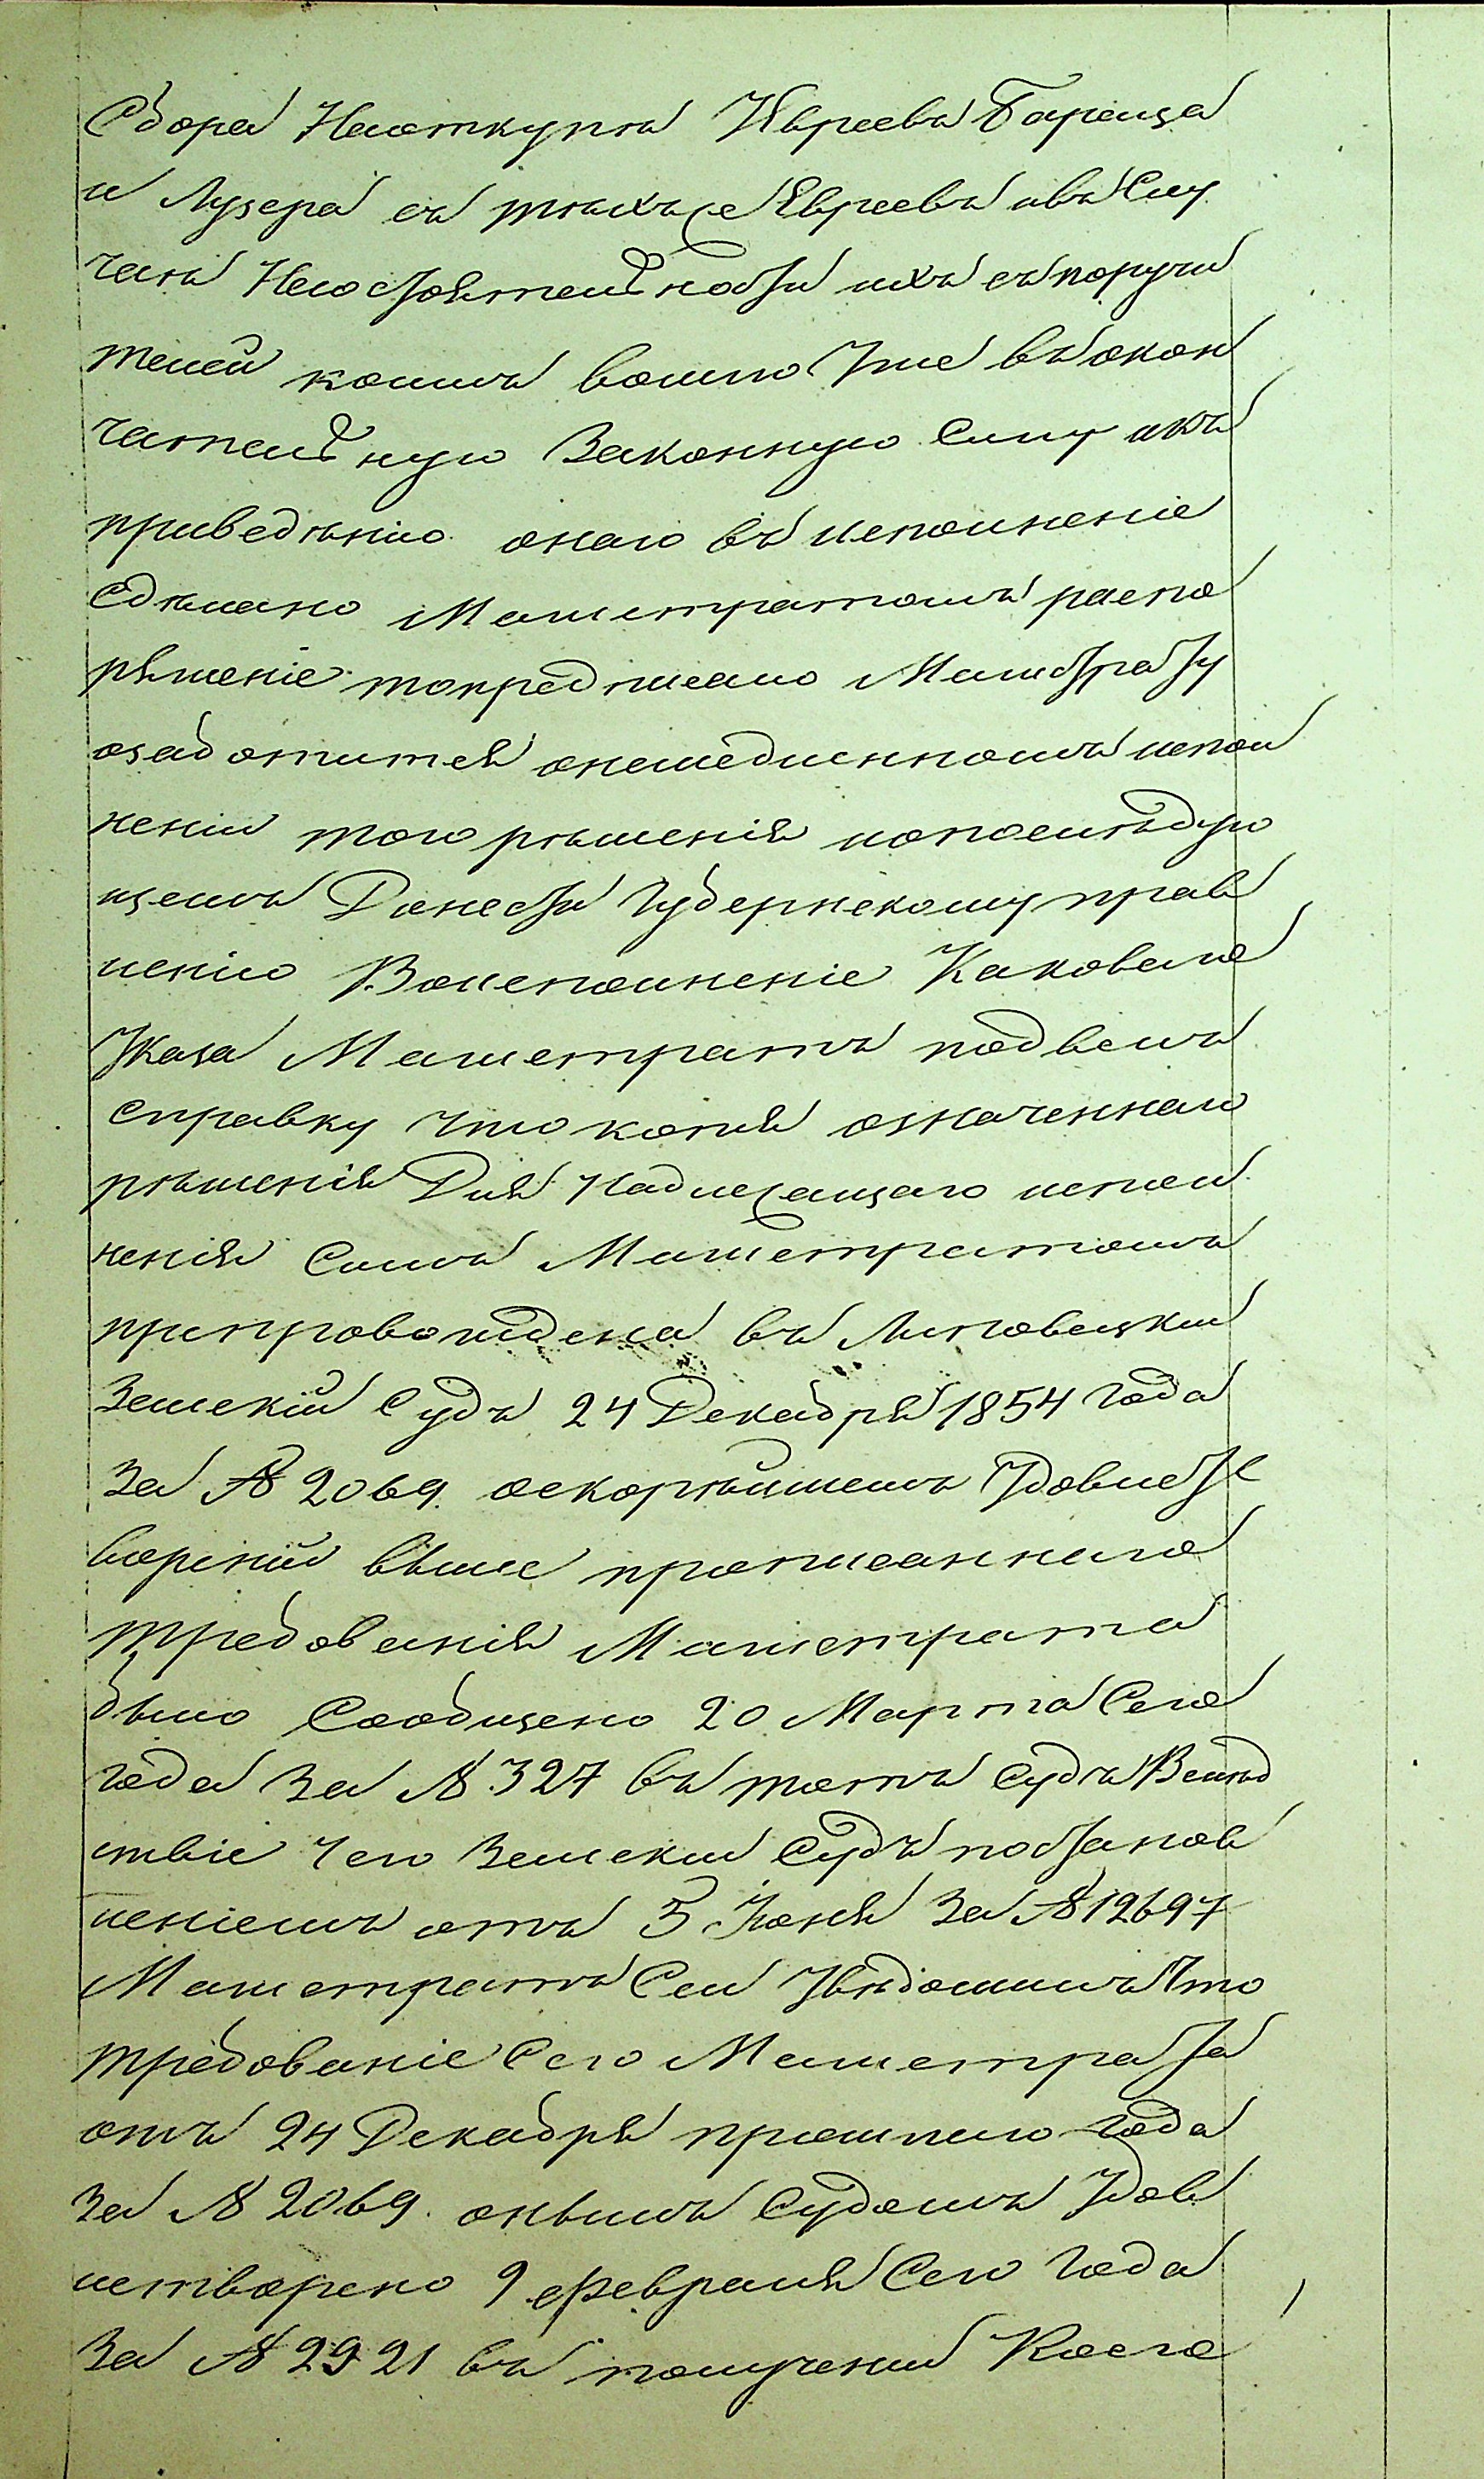 Сбора Наоткупъ Уевреевъ Баренза
и Лузера съ техъже Евреевъ ивъ Слу
чаѣ Несостоятельности ихъ съ поручи
телей коимъ вошло Уже въ окон
чательную Законную Силу икъ
приведѣнію онаго въ исполненіе
Сдѣлано Магистратомъ распо
ряженіе то предписано Магистрату
озаботится онемедленномъ испол
неніи того рѣшенія ипослѣдую
щемъ Донести Губернскому прав
ленію Воисполненіе Каковаго
Указа Магистратъ подвелъ
Справку Что копія означеннаго
рѣшенія Для Надлежащаго испол
ненія Симъ Магистратомъ
припровождена въ Липовецкій
Земскій Судъ 24 Декабря 1854 года
За № 2069. оскорѣйшемъ Удовлет
вореніи выше прописаннаго
требованія Магистрата
было Сообщено 20 Марта Сего
года За № 327 въ тотъ Судъ Вслѣд
ствіе Чего Земскій Судъ постанов
леніемъ отъ 5 Іюня За № 12697
Магистратъ Сей Увѣдомилъ Что
требованіе Сего Магистрата
отъ 24 Декабря прошлаго года
За № 2069. онымъ Судомъ Удов
летворено 9 февраля Сего Года
За № 2921 въ полученіи Коего